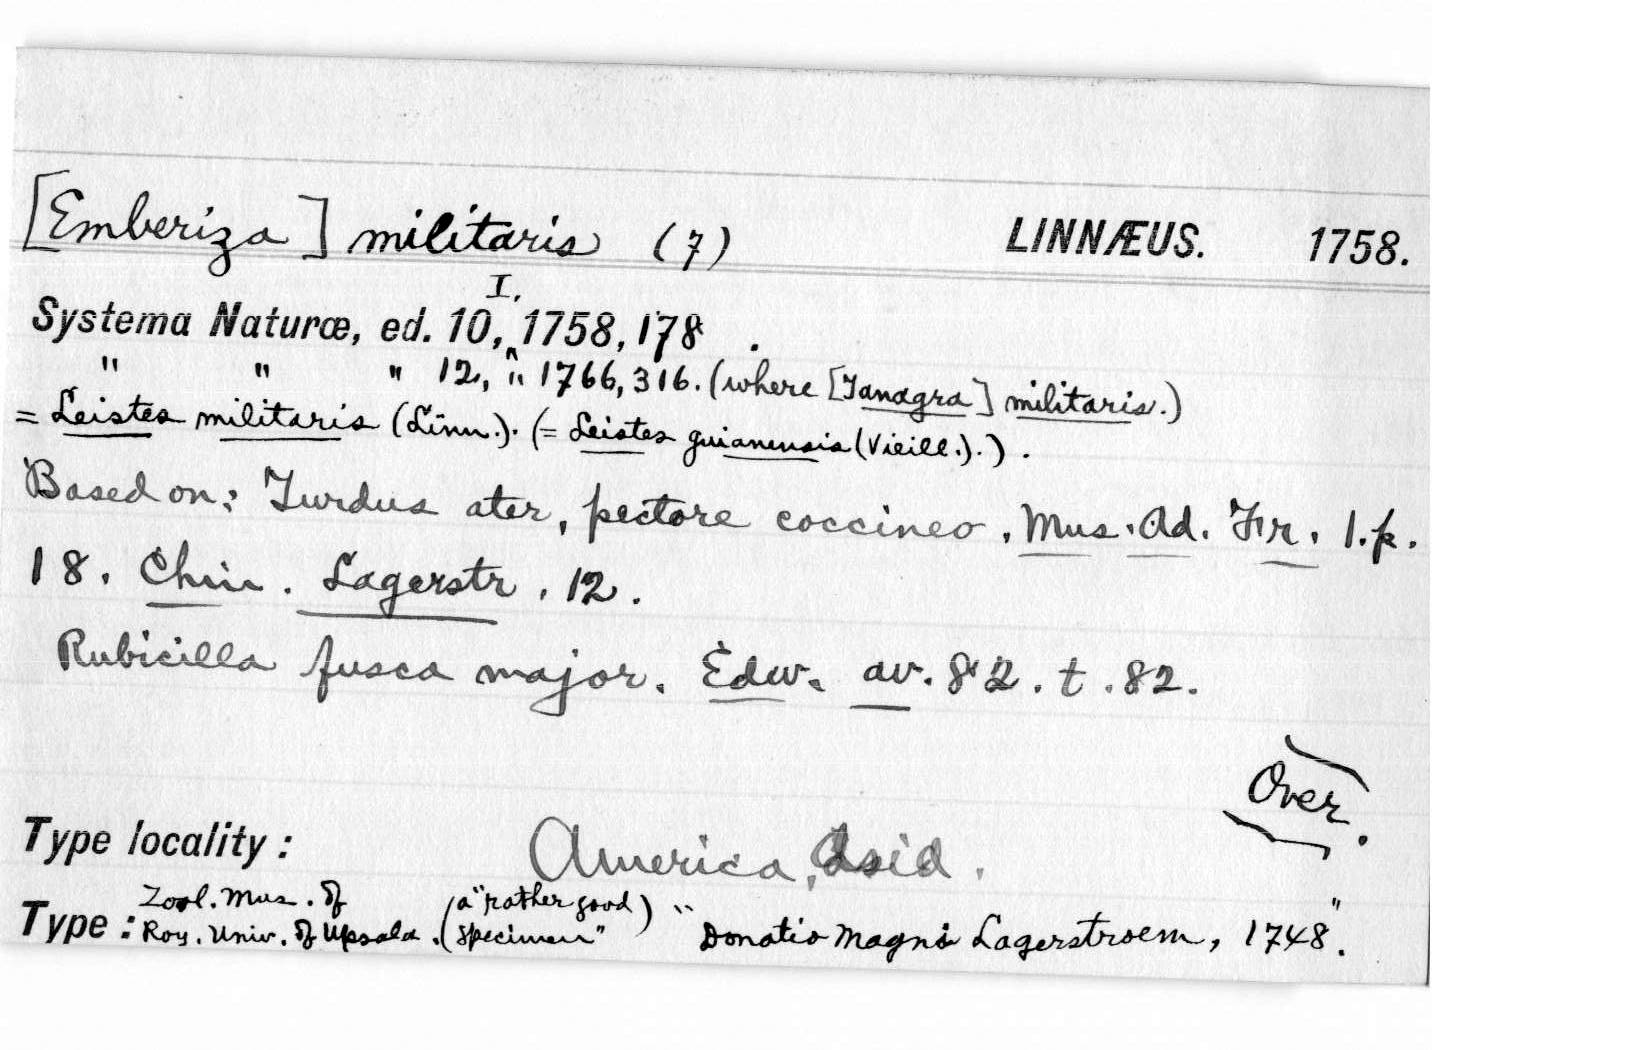 [Emberiza] militaris (7) LINNÆUS. 1758.
I.
Systema Naturæ, ed. 10,^1758, 178 .
" " " 12, " 1766, 316. (where [Tanagra] militaris.)
= Leistes militaris (Linn.). (= Leistes guianensis (Vieill.).) .
Based on: Turdus ater, pectore coccineo. Mus. Ad. Fr. 1. p.
18. Chin. Lagerstr. 12.
Rubicilla fusca major. Edw. av. 82. t. 82.
Over.
Type locality: America, Asia.
Zool. Mus. of (a "rather good)
Type: Roy. Univ. of Upsala. (specimen" "Donatio Magni Lagerstroem, 1748".